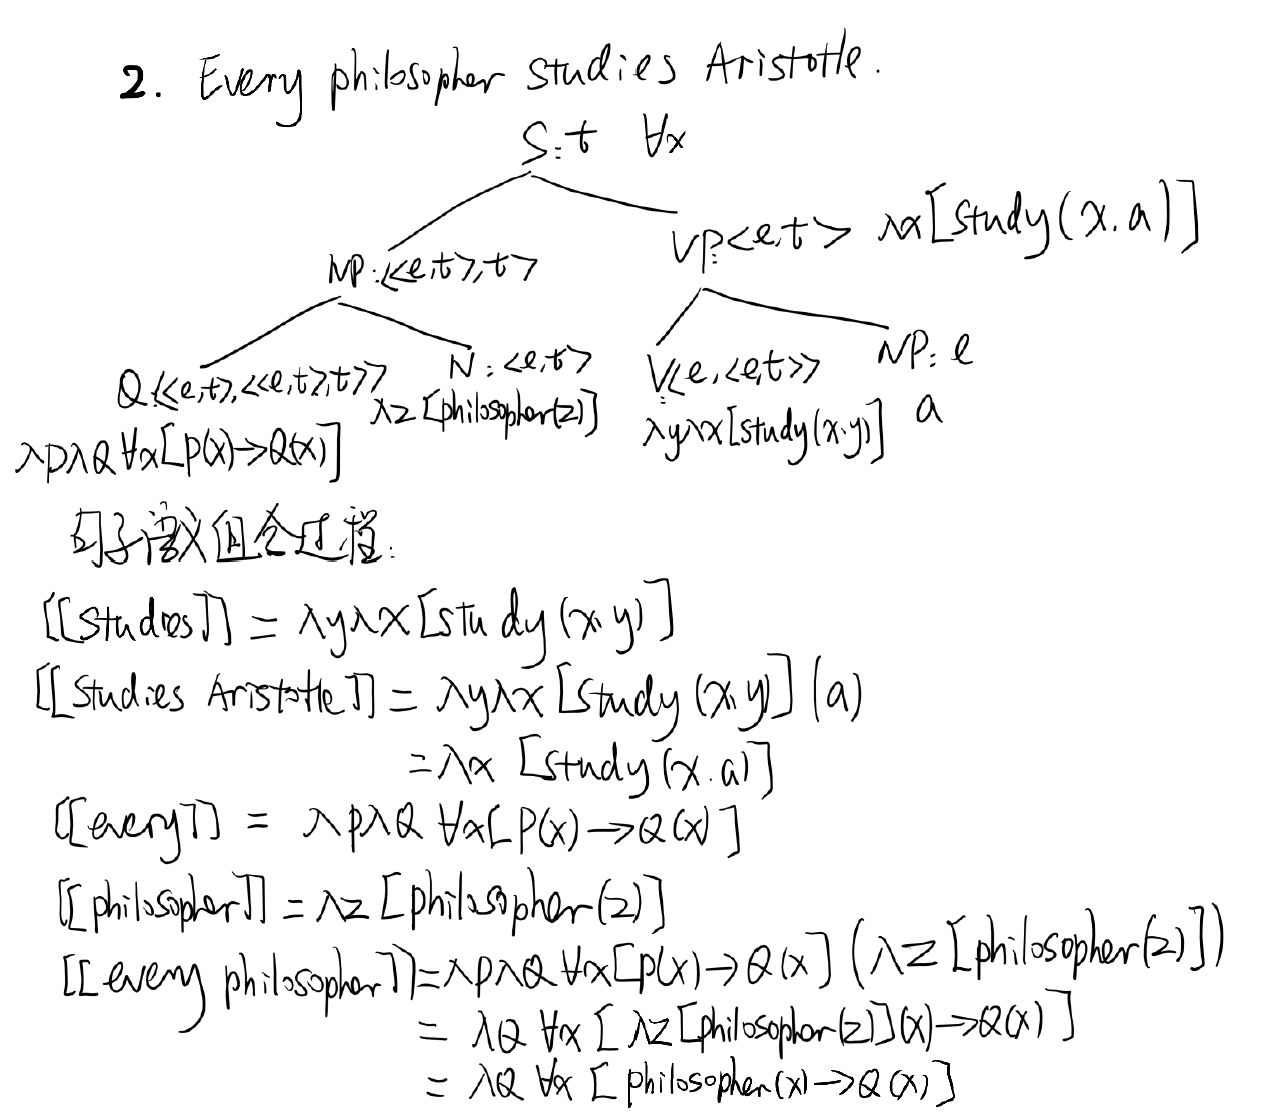 2. Every philosopher studies Aristotle.
S:t ∀x
NP:<<e,t>,t> VP:<e,t> λx[study(x.a)]
Q:<<e,t>,<<e,t>,t>> N:<e,t> V:<e,<e,t>> NP:e
λPλQ∀x[P(x)→Q(x)] λz[philosopher(z)] λyλx[study(x,y)] a
句子语义组合过程:
[[studies]] = λyλx[study(x,y)]
[[studies Aristotle]] = λyλx[study(x,y)](a)
= λx [study(x.a)]
[[every]] = λPλQ ∀x[P(x)→Q(x)]
[[philosopher]] = λz[philosopher(z)]
[[every philosopher]] = λPλQ ∀x[P(x)→Q(x)](λz[philosopher(z)])
= λQ ∀x [λz[philosopher(z)](x)→Q(x)]
= λQ ∀x [philosopher(x)→Q(x)]